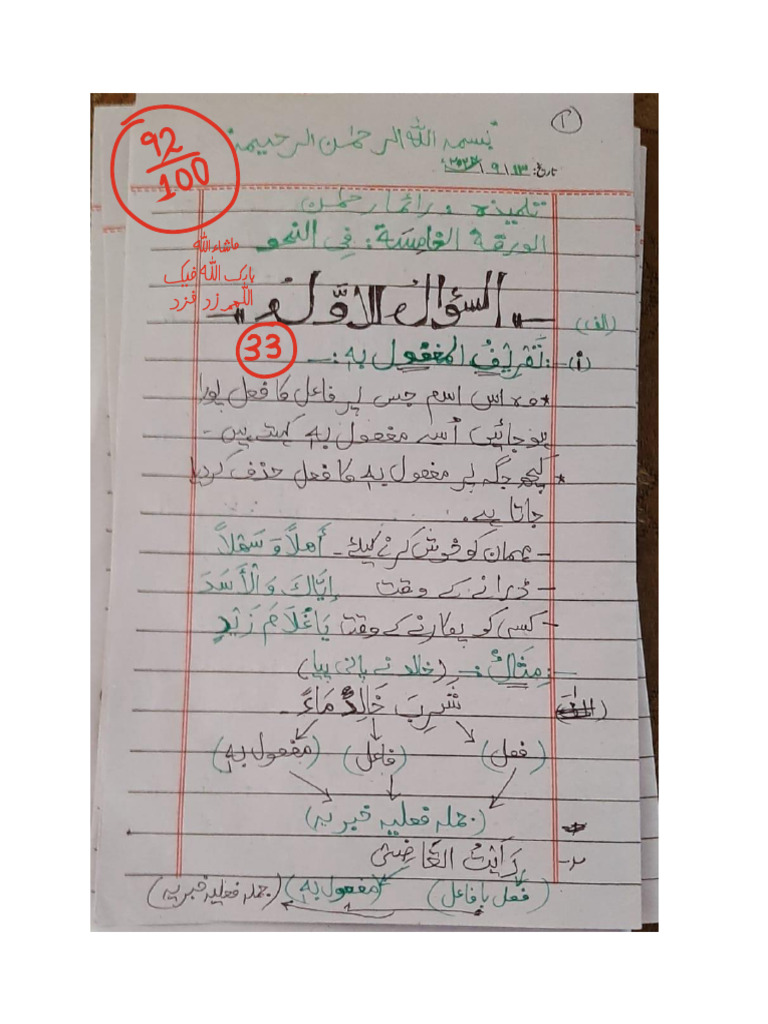 بسمہ اللہ الرحمٰن الرحیمہ
۲
تاریخ: ۱۳/۹/۲۰۲۴
92/100
تلمیذہ: رائما رحمٰن
الورقة الخامِسَة: فی النحو
ماشاءاللہ
بارک اللہ فیک
اللھم زد فزد
السؤال الاوّل
(الف)
33
(i) تَعْرِیْفُ المَفْعُولِ بِهٖ :-
* وہ اس اسم جس پر فاعل کا فعل پورا
ہو جائیں اُسے مفعول بہ کہتے ہیں -
* کچھ جگہ پر مفعول بہ کا فعل حذف کردیا
جاتا ہے.
- عمان کو خوش کرنے کیلئے - أَهلاً وَ سَهْلاً
- ڈرانے کے وقت إِیَّاكَ وَالْأَسَدَ
- کسی کو پکارنے کے وقت یَاغُلَامَ زَیْدٍ
مِثَالُ :- (خالد نے پانی پیا)
شَرِبَ خَالِدٌ مَاءً -
(فعل) (فاعل) (مفعول بہ)
(جملہ فعلیہ خبریہ)
۲- رَأَیْتُ القَاضِیَ
(فعل با فاعل) (مفعول بہ) (جملہ فعلیہ خبریہ)